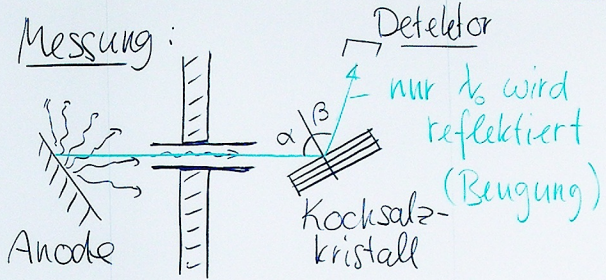 Messung:
Detektor
nur λ₀ wird
reflektiert
(Beugung)
α
β
Anode
Kochsalz-
kristall